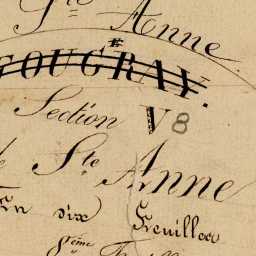 Ste Anne
FOUGRAY.
Section V8
de Ste Anne
En dix Feuilles
8ème